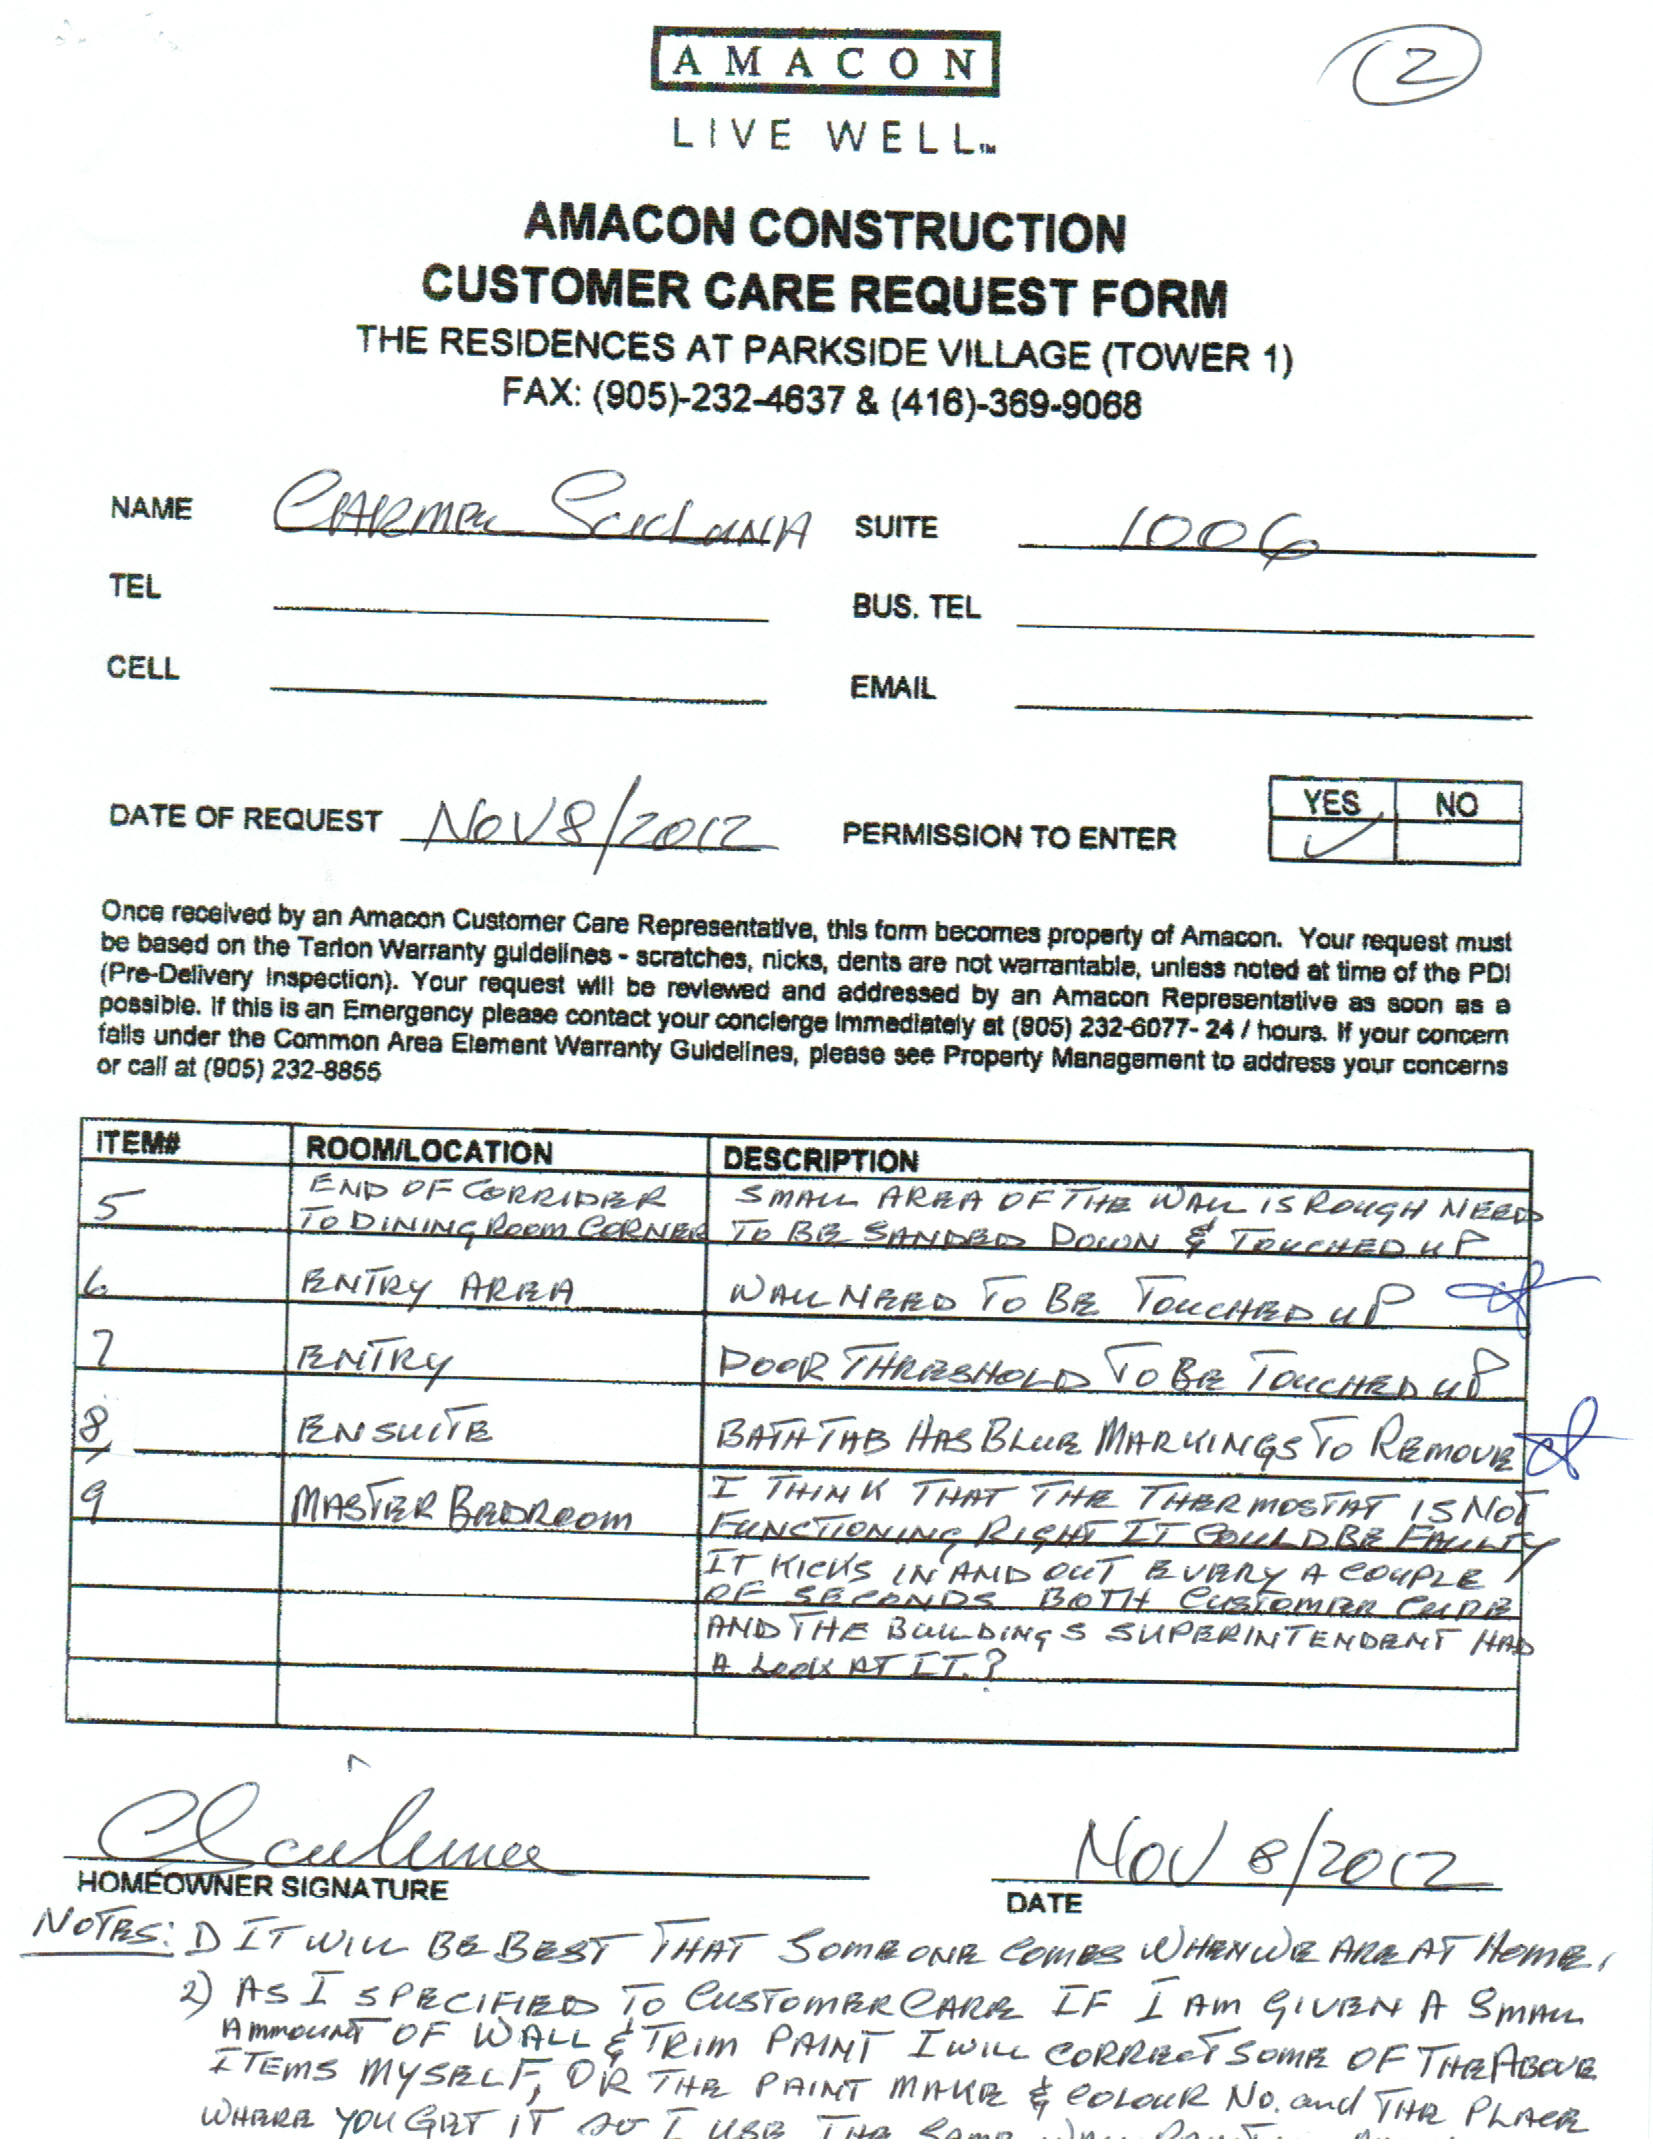 AMACON
LIVE WELL™
2
AMACON CONSTRUCTION
CUSTOMER CARE REQUEST FORM
THE RESIDENCES AT PARKSIDE VILLAGE (TOWER 1)
FAX: (905)-232-4637 & (416)-369-9068
NAME SUITE 1006
TEL BUS. TEL
CELL EMAIL
DATE OF REQUEST NOV 8/2012 PERMISSION TO ENTER YES ✓ NO
Once received by an Amacon Customer Care Representative, this form becomes property of Amacon. Your request must
be based on the Tarion Warranty guidelines - scratches, nicks, dents are not warrantable, unless noted at time of the PDI
(Pre-Delivery Inspection). Your request will be reviewed and addressed by an Amacon Representative as soon as a
possible. If this is an Emergency please contact your concierge immediately at (905) 232-6077- 24 / hours. If your concern
falls under the Common Area Element Warranty Guidelines, please see Property Management to address your concerns
or call at (905) 232-8855
ITEM# ROOM/LOCATION DESCRIPTION
5 END OF CORRIDER TO DINING ROOM CORNER SMALL AREA OF THE WALL IS ROUGH NEED TO BE SANDED DOWN & TOUCHED UP
6 ENTRY AREA WALL NEED TO BE TOUCHED UP
7 ENTRY DOOR THRESHOLD TO BE TOUCHED UP
8 ENSUITE BATH TAB HAS BLUE MARKINGS TO REMOVE
9 MASTER BEDROOM I THINK THAT THE THERMOSTAT IS NOT
FUNCTIONING RIGHT IT COULD BE FAULTY
IT KICKS IN AND OUT EVERY A COUPLE
OF SECONDS BOTH CUSTOMER
AND THE BUILDINGS SUPERINTENDENT HAD
A LOOK AT IT.?
HOMEOWNER SIGNATURE
NOV 8/2012
DATE
NOTES: 1) IT WILL BE BEST THAT SOMEONE COMES WHEN WE ARE AT HOME.
2) AS I SPECIFIED TO CUSTOMER CARE IF I AM GIVEN A SMALL
AMMOUNT OF WALL & TRIM PAINT I WILL CORRECT SOME OF THE ABOVE
ITEMS MYSELF, OR THE PAINT MAKE & COLOUR NO. and THE PLACE
WHERE YOU GET IT SO I USE THE SAME WALL